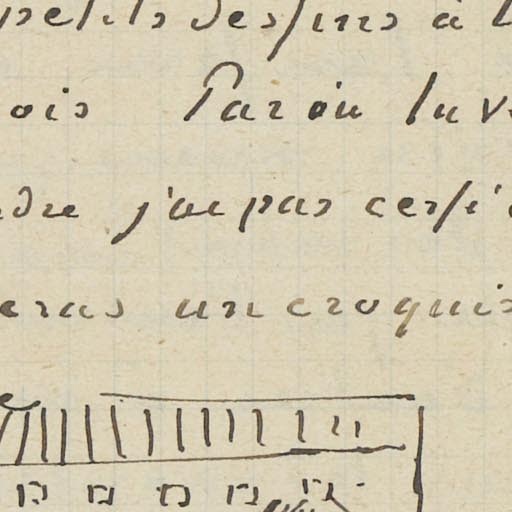 petits dessins à
ois Par où tu v
dre j'ai pas cessé
eras un croquis